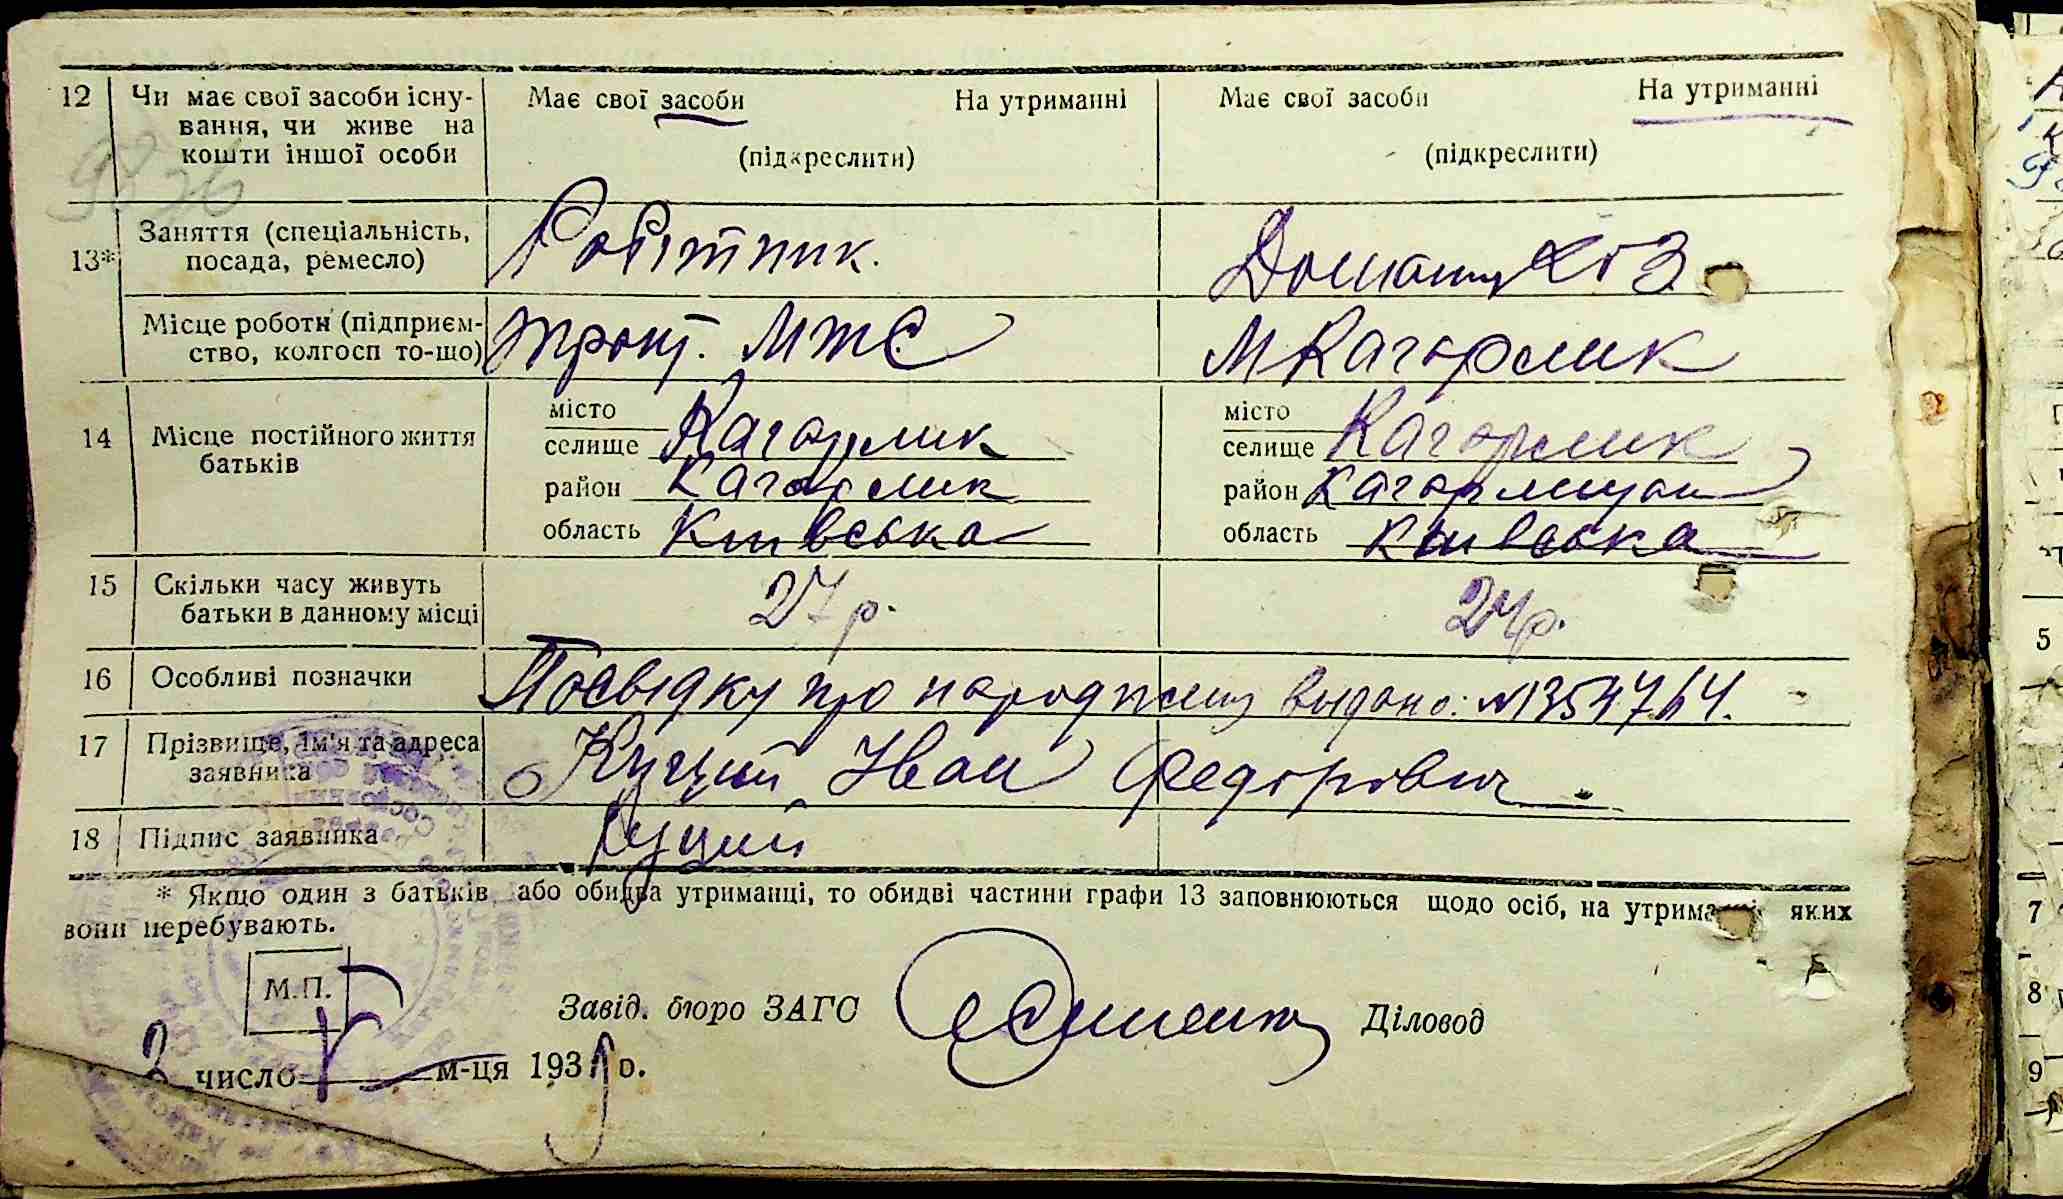 12 Чи має свої засоби існу- Має свої засоби На утриманні Має свої засоби На утриманні
вання, чи живе на
кошти іншої особи (підкреслити) (підкреслити)
13* Заняття (спеціальність, Робітник.
посада, ремесло)
Місце роботи (підприєм- МТС М Кагорлик
ство, колгосп то-що)
14 Місце постійного життя місто Кагорлик місто Кагорлик
батьків селище селище
район Кагорлик район
область Київська область Київська
15 Скільки часу живуть 27 р. 24 р.
батьки в данному місці
16 Особливі позначки Посвідку про народження видано: №
17 Прізвище, ім'я та адреса Куций Іван Федорович.
заявника
18 Підпис заявника Куций
* Якщо один з батьків або обидва утриманці, то обидві частини графи 13 заповнюються щодо осіб, на яких
вони перебувають.
М.П.
Завід. бюро ЗАГС Діловод
число м-ця 193 р.
5
7
8
9